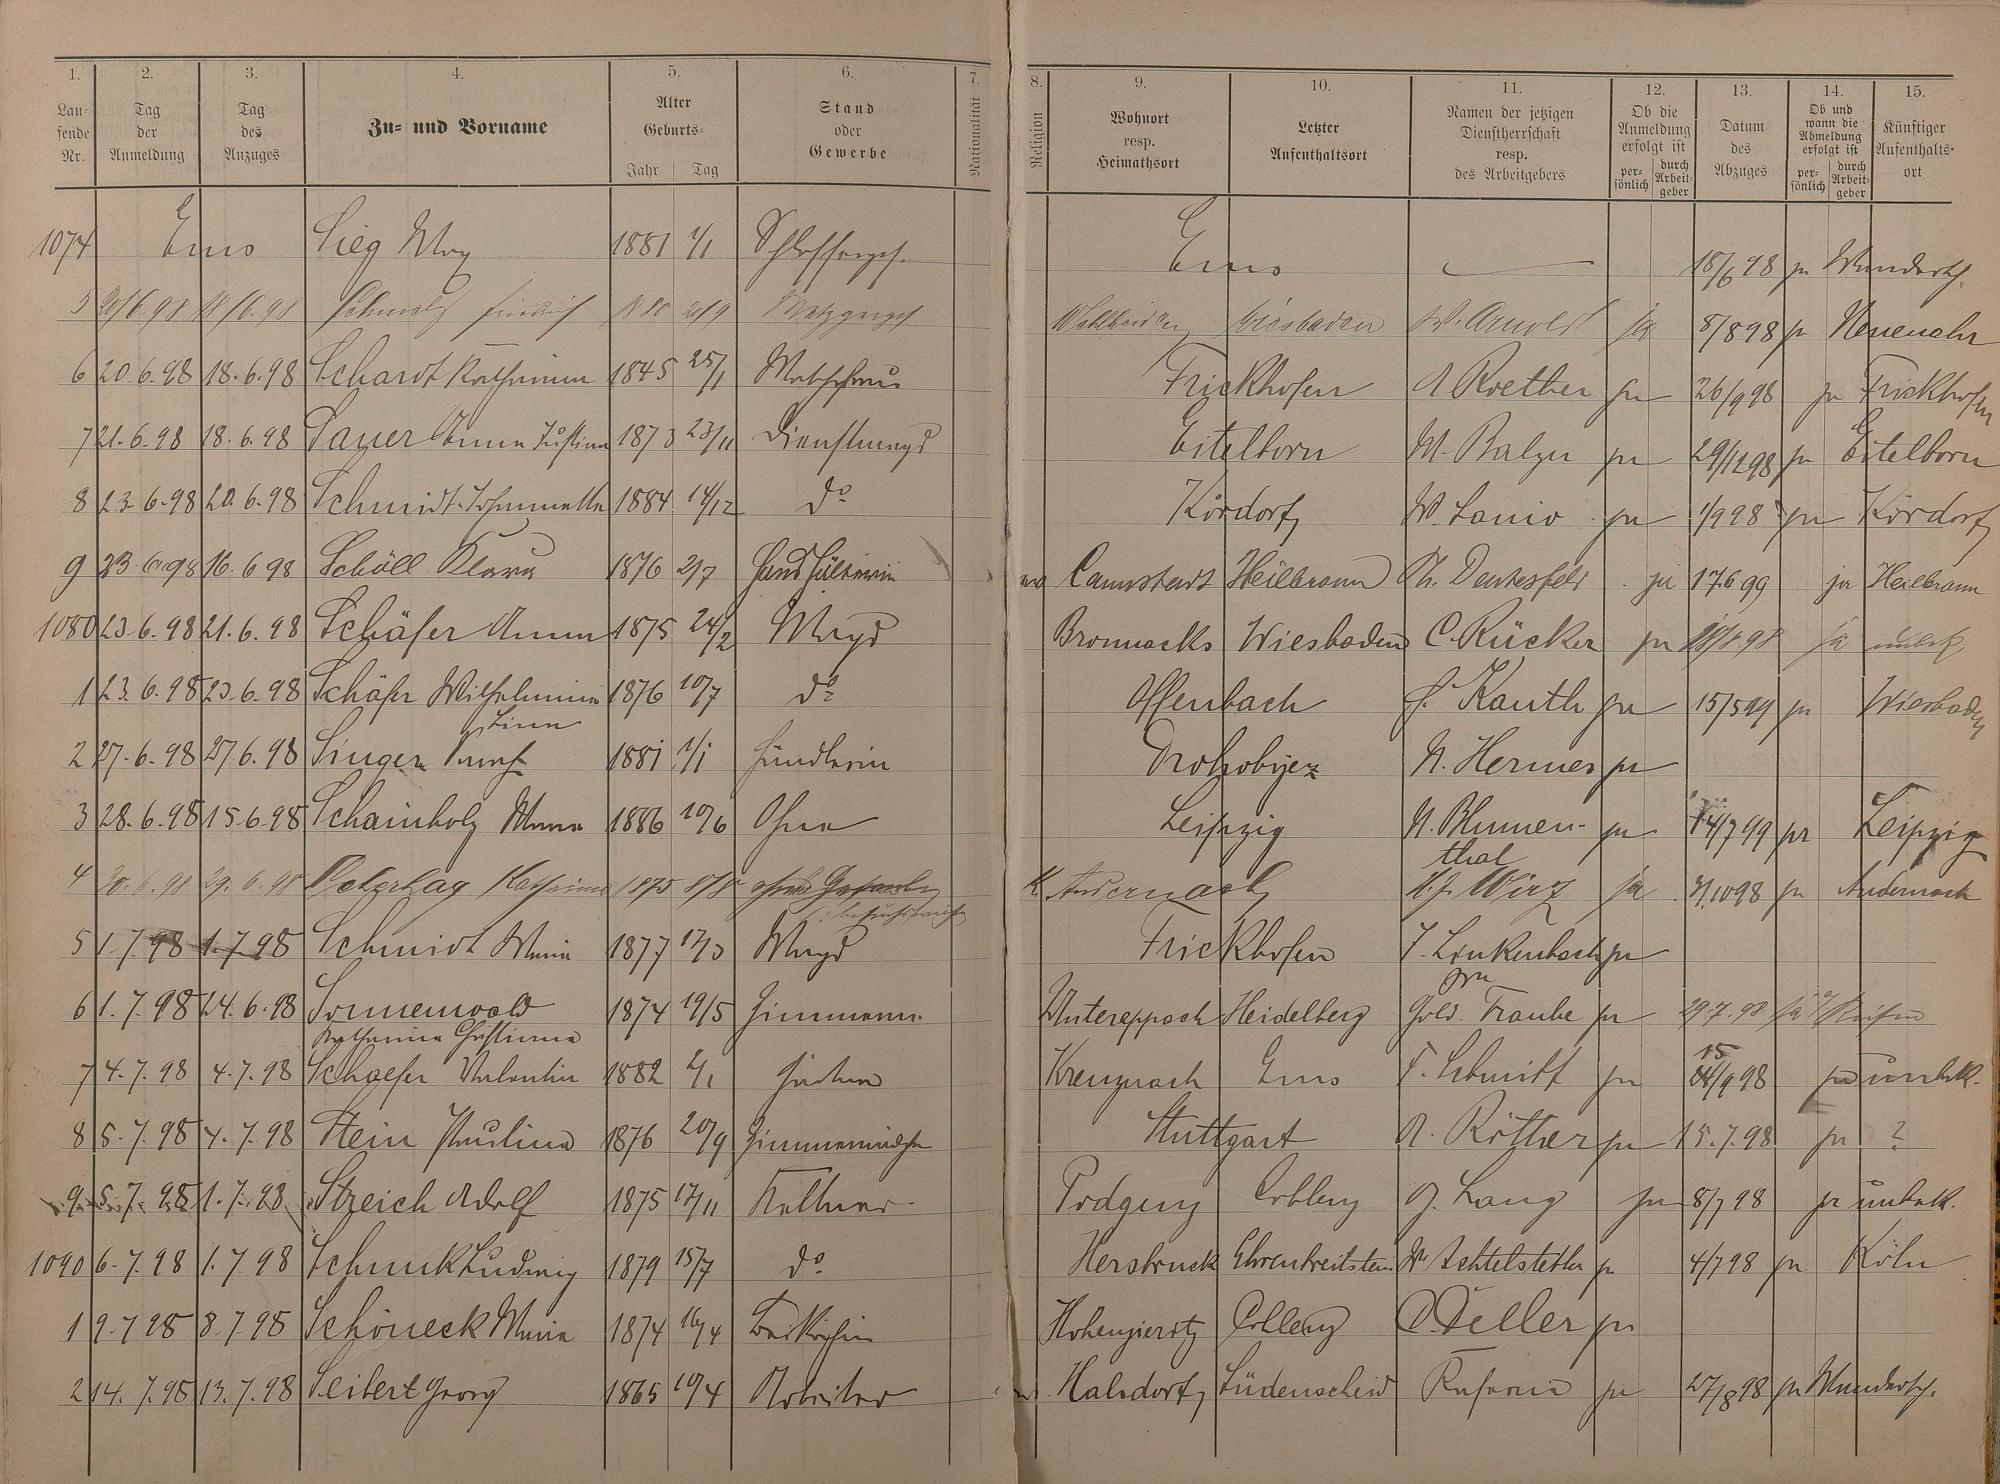 1. 2. 3. 4. 5. 6. 7. 8. 9. 10. 11. 12. 13. 14. 15.
Laufende Nr. Tag der Anmeldung Tag des Anzuges Zu- und Vorname Alter Geburts- Jahr Tag Stand oder Gewerbe Nationalität Religion Wohnort resp. Heimathsort Letzter Aufenthaltsort Namen der jetzigen Dienstherrschaft resp. des Arbeitgebers Ob die Anmeldung erfolgt ist persönlich durch Arbeitgeber Datum des Abzuges Ob und wann die Abmeldung erfolgt ist persönlich durch Arbeitgeber Künftiger Aufenthaltsort
1074 Ems Sieg Max 1881 1/1 Schlosserges. Ems 18/6 98 ja Wundersch.
5 20/6.98 18/6.98 Schmalz 1880 20/9 Metzgerges Wiesbaden W. Arnold ja 8/8 98 ja Neuenahr
6 20.6.98 18.6.98 Schardt Katharina 1845 25/1 Waschfrau Frickhofen A Roether ja 26/9 98 ja Frickhofen
7 21.6.98 18.6.98 Sayer Anna Justina 1873 23/11 Dienstmagd Eitelborn M. Balzer ja 29/12 98 ja Eitelborn
8 23.6.98 20.6.98 Schmidt Johannette 1884 14/12 do Kördorf W. Lanio ja 1/9 98 ja Kördorf
9 23.6.98 16.6 98 Schöll Klara 1876 2/7 Cannstadt Heilbronn Th. Denkesfeld ja 17.6 99 ja Heilbronn
1080 23.6.98 21.6.98 Schäfer Anna 1875 24/2 Magd Wiesbaden C. Rücker ja ja unbek.
1 23.6.98 23.6.98 Schäfer Wilhelmina 1876 10/7 do Offenbach Kauth ja 15/5 99 ja Wiesbaden
Lina
2 27.6.98 27.6.98 Singer 1881 1/1 Händlerin N. Hermes ja
3 28.6.98 15.6.98 Schainholz 1886 10/6 Ohne Leipzig N. Blumen- ja 14/7 99 ja Leipzig
thal
4 29.6.98 Katharina 1875 8/8 K. Andernach Wirz ja 31.10 98 ja Andernach
5 1.7.98 1.7.98 Schmidt Maria 1877 17/3 Magd Frickhofen J. Linkenbach ja
6 1.7.98 24.6.98 Sonnenwald 1874 19/5 Zimmerm. Untereppach Heidelberg Gold. Traube ja 29.7.98 ja Reisen
Katharina Christiana
7 4.7.98 4.7.98 Schaefer Valentin 1882 2/1 Kreuznach Ems F. Schmitt ja 15/9 98 ja unbek.
8 5.7.98 4.7.98 Stein Paulina 1876 20/9 Zimmermädchen Stuttgart A. Röther ja 15.7.98 ja ?
9 5.7.98 1.7.98 Streich Adolf 1875 17/11 Kellner Coblenz J. Lang ja 8/7 98 ja unbek.
1090 6.7.98 1.7.98 Schmuk Ludwig 1879 15/7 do Hersbruck Ehrenbreitstein W. Achtelstetter ja 4/7 98 ja Köln
1 9.7 98 8.7.98 Schöneck Maria 1874 16/4 Beiköchin Hohenzieritz Coblenz Zeller ja
2 14.7.98 13.7.98 Seibert Georg 1865 10/4 Arbeiter Halsdorf Lüdenscheid ja 27/8 98 ja Wundersch.